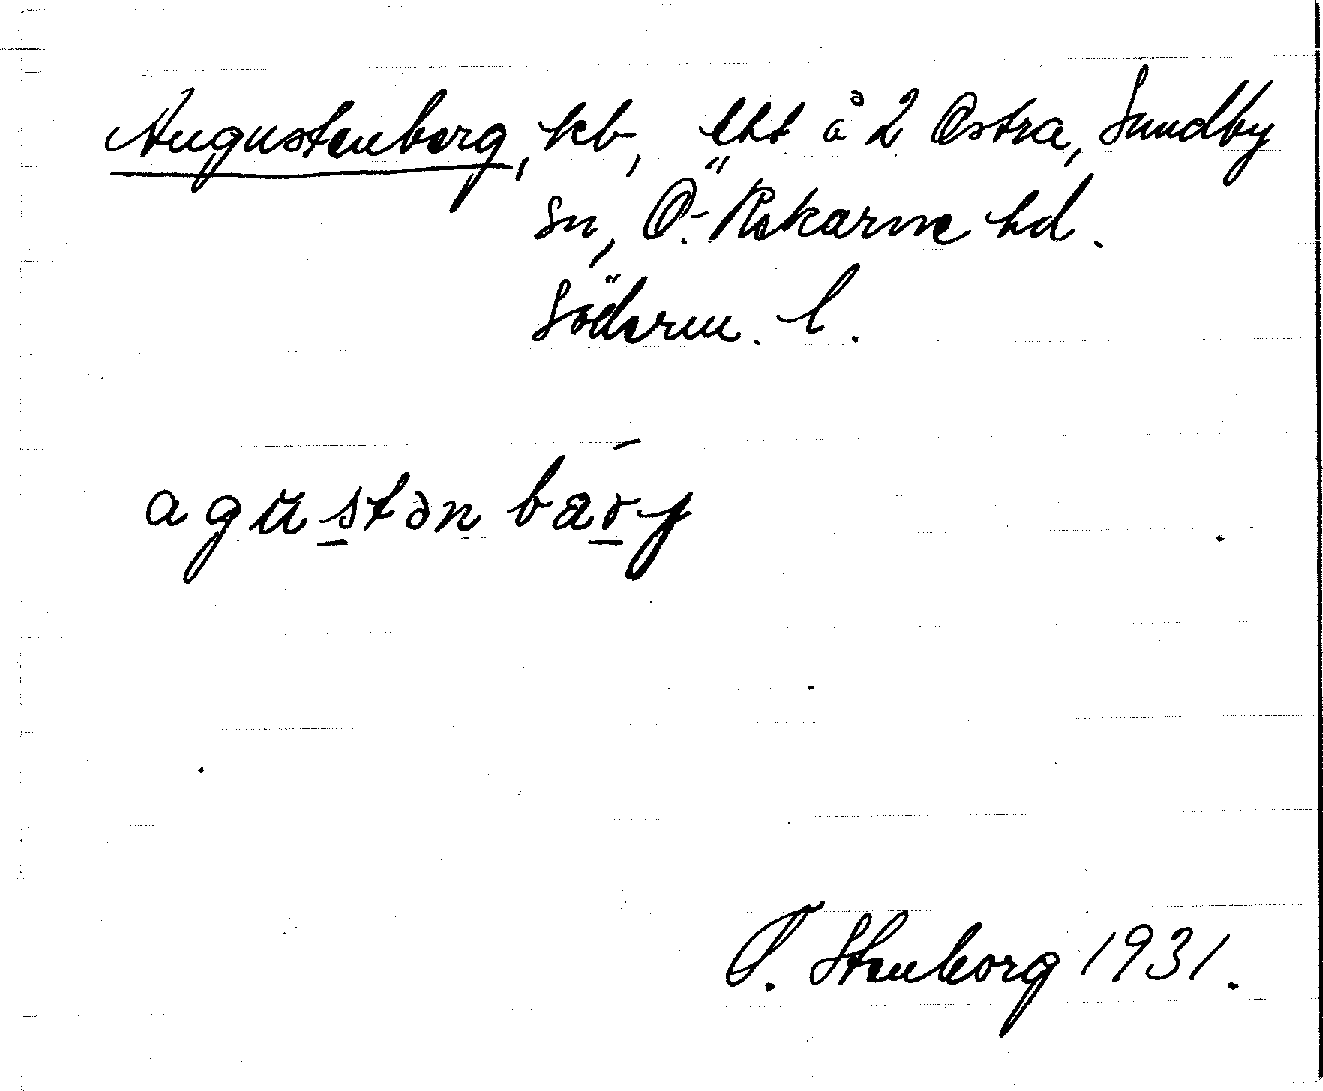 Augustenberg, kb, lht å 2 Östra, Sundby
sn, Ö. Rekarne hd.
Söderm. l.
agustən bärj
O. Stenborg 1931.